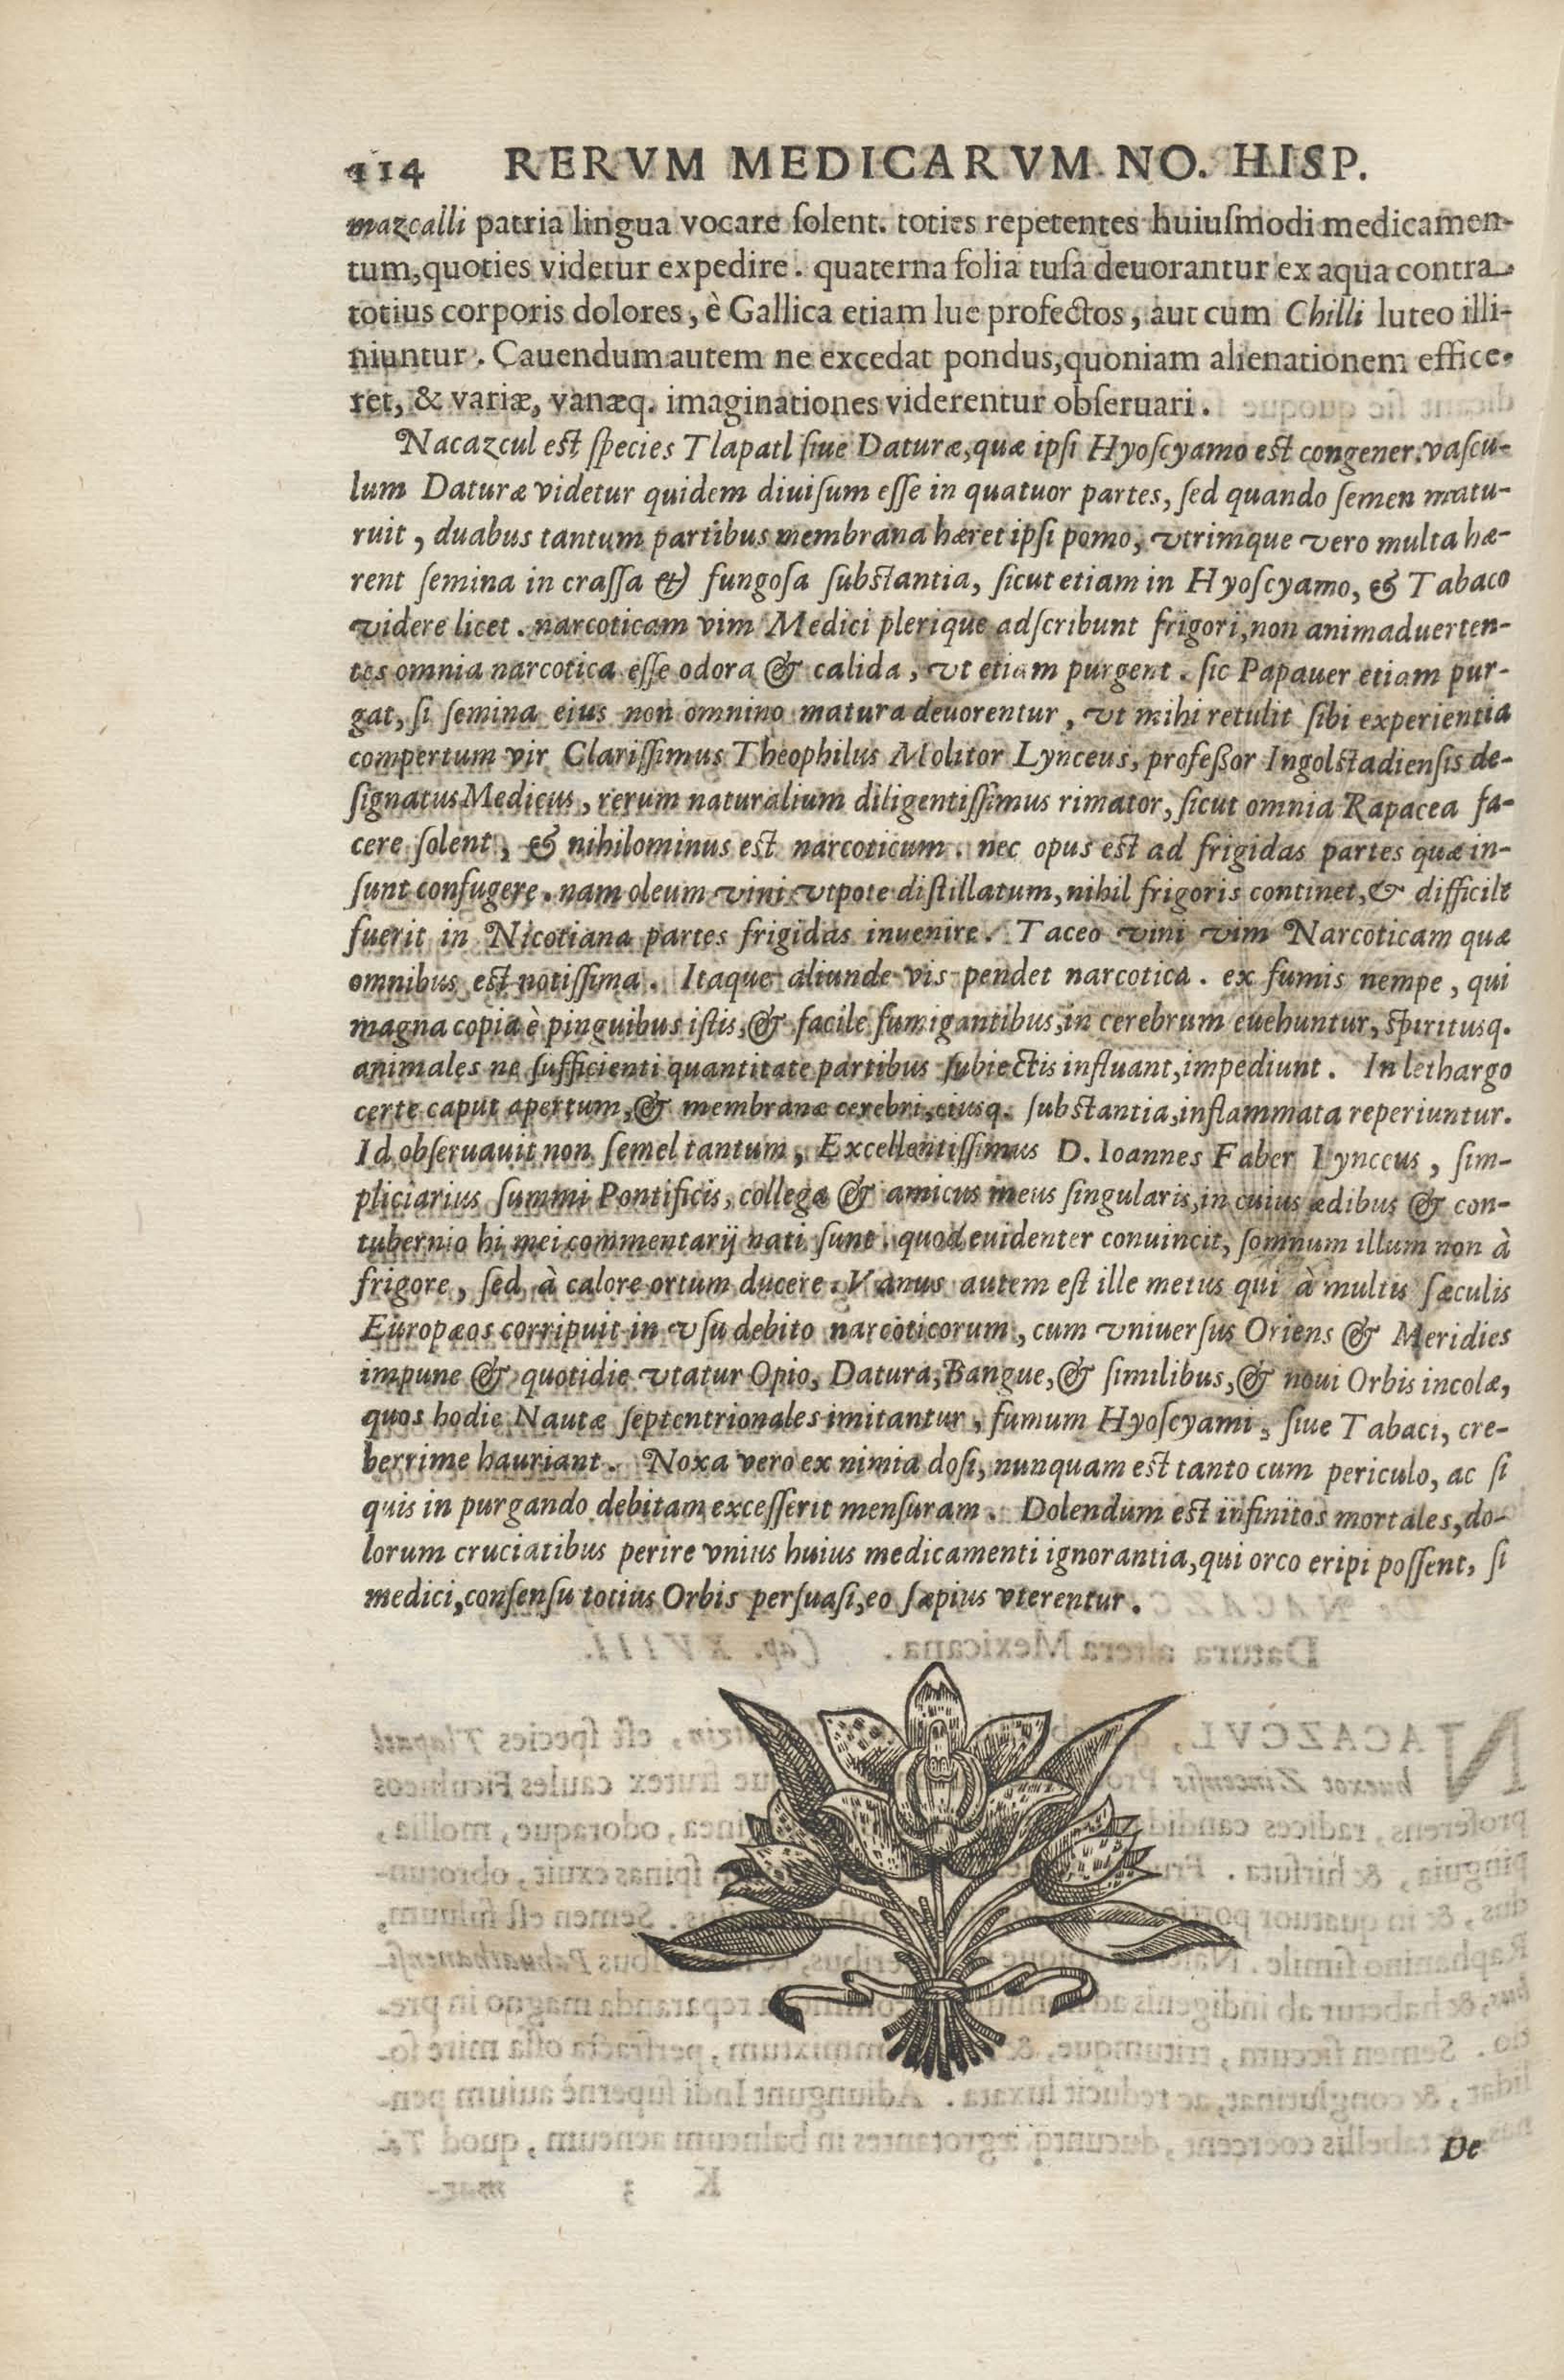 114 RERVM MEDICARVM NO. HISP.
mazcalli patria lingua vocare ſolent. toties repetentes huiuſmodi medicamen-
tum, quoties videtur expedire. quaterna folia tuſa deuorantur ex aqua contra
totius corporis dolores, è Gallica etiam lue profectos, aut cum Chilli luteo illi-
niuntur. Cauendum autem ne excedat pondus, quoniam alienationem effice-
ret, & variæ, vanæq. imaginationes viderentur obſeruari.
Nacazcul eſt ſpecies Tlapatl ſiue Daturæ, quæ ipſi Hyoſcyamo eſt congener. vaſcu-
lum Daturæ videtur quidem diuiſum eſſe in quatuor partes, ſed quando ſemen matu-
ruit, duabus tantum partibus membrana hæret ipſi pomo, vtrimque vero multa hæ-
rent ſemina in craſſa & fungoſa ſubſtantia, ſicut etiam in Hyoſcyamo, & Tabaco
videre licet. narcoticam vim Medici plerique adſcribunt frigori, non animaduerten-
tes omnia narcotica eſſe odora & calida, vt etiam purgent. ſic Papauer etiam pur-
gat, ſi ſemina eius non omnino matura deuorentur, vt mihi retulit ſibi experientia
compertum vir Clariſſimus Theophilus Molitor Lynceus, profeßor Ingolſtadienſis de-
ſignatus Medicus, rerum naturalium diligentiſſimus rimator, ſicut omnia Rapacea fa-
cere ſolent, & nihilominus eſt narcoticum. nec opus eſt ad frigidas partes quæ in-
ſunt confugere. nam oleum vini vtpote diſtillatum, nihil frigoris continet, & difficile
fuerit in Nicotiana partes frigidas inuenire. Taceo vini vim Narcoticam quæ
omnibus eſt notiſſima. Itaque aliunde vis pendet narcotica. ex fumis nempe, qui
magna copia è pinguibus iſtis, & facile fumigantibus, in cerebrum euehuntur, ſpiritusq.
animales ne ſufficienti quantitate partibus ſubiectis influant, impediunt. In lethargo
certe caput apertum, & membranæ cerebri, eiusq. ſubſtantia, inflammata reperiuntur.
Id obſeruauit non ſemel tantum, Excellentiſſimus D. Ioannes Faber Lynceus, ſim-
pliciarius ſummi Pontificis, collega & amicus meus ſingularis, in cuius ædibus & con-
tubernio hi mei commentarij nati ſunt. quod euidenter conuincit, ſomnum illum non à
frigore, ſed à calore ortum ducere. Vanus autem eſt ille metus qui à multis ſæculis
Europæos corripuit in vſu debito narcoticorum, cum vniuerſus Oriens & Meridies
impune & quotidie vtatur Opio, Datura, Bangue, & ſimilibus, & noui Orbis incolæ,
quos hodie Nautæ ſeptentrionales imitantur, fumum Hyoſcyami, ſiue Tabaci, cre-
berrime hauriant. Noxa vero ex nimia doſi, nunquam eſt tanto cum periculo, ac ſi
quis in purgando debitam exceſſerit menſuram. Dolendum eſt infinitos mortales, do-
lorum cruciatibus perire vnius huius medicamenti ignorantia, qui orco eripi poſſent, ſi
medici, conſenſu totius Orbis perſuaſi, eo ſæpius vterentur.
De